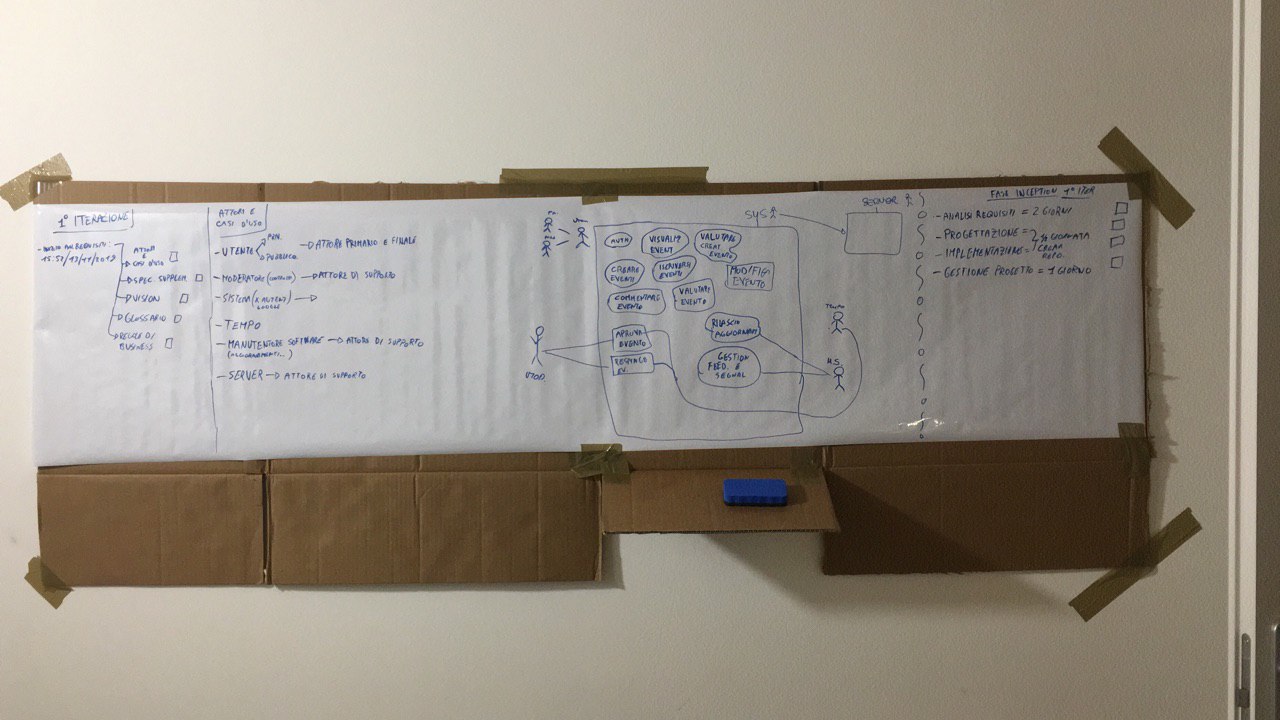 1° ITERAZIONE
- INIZIO AN.REQUISITI:
15:57/17/11/2019
ATTORI
E
CASI D'USO
SPEC. SUPPLEM.
VISION
GLOSSARIO
REGOLE DI
BUSINESS
ATTORI E
CASI D'USO
- UTENTE
PRIV.
PUBBLICO
ATTORE PRIMARIO E FINALE
- MODERATORE
ATTORE DI SUPPORTO
- SISTEMA
- TEMPO
- MANUTENTORE SOFTWARE
ATTORE DI SUPPORTO
(AGGIORNAMENTI..)
- SERVER
ATTORE DI SUPPORTO
SYS
AUTH
VISUALIZ
EVENT
VALUTARE
CREAT.
EVENTO
CREARE
EVENTI
ISCRIVERSI
EVENTO
MODIFICA
EVENTO
COMMENTARE
EVENTO
VALUTARE
EVENTO
APROVA
EVENTO
RESPINGE
EV.
RILASCIO
AGGIORNAM
GESTION
FEED. E
SEGNAL
TEMPO
M.S.
SERVER
FASE INCEPTION 1° ITER
- ANALISI REQUISITI = 2 GIORNI
- PROGETTAZIONE =
- IMPLEMENTAZIONE =
1/2 GIORNATA
CREAR
REPO.
- GESTIONE PROGETTO = 1 GIORNO